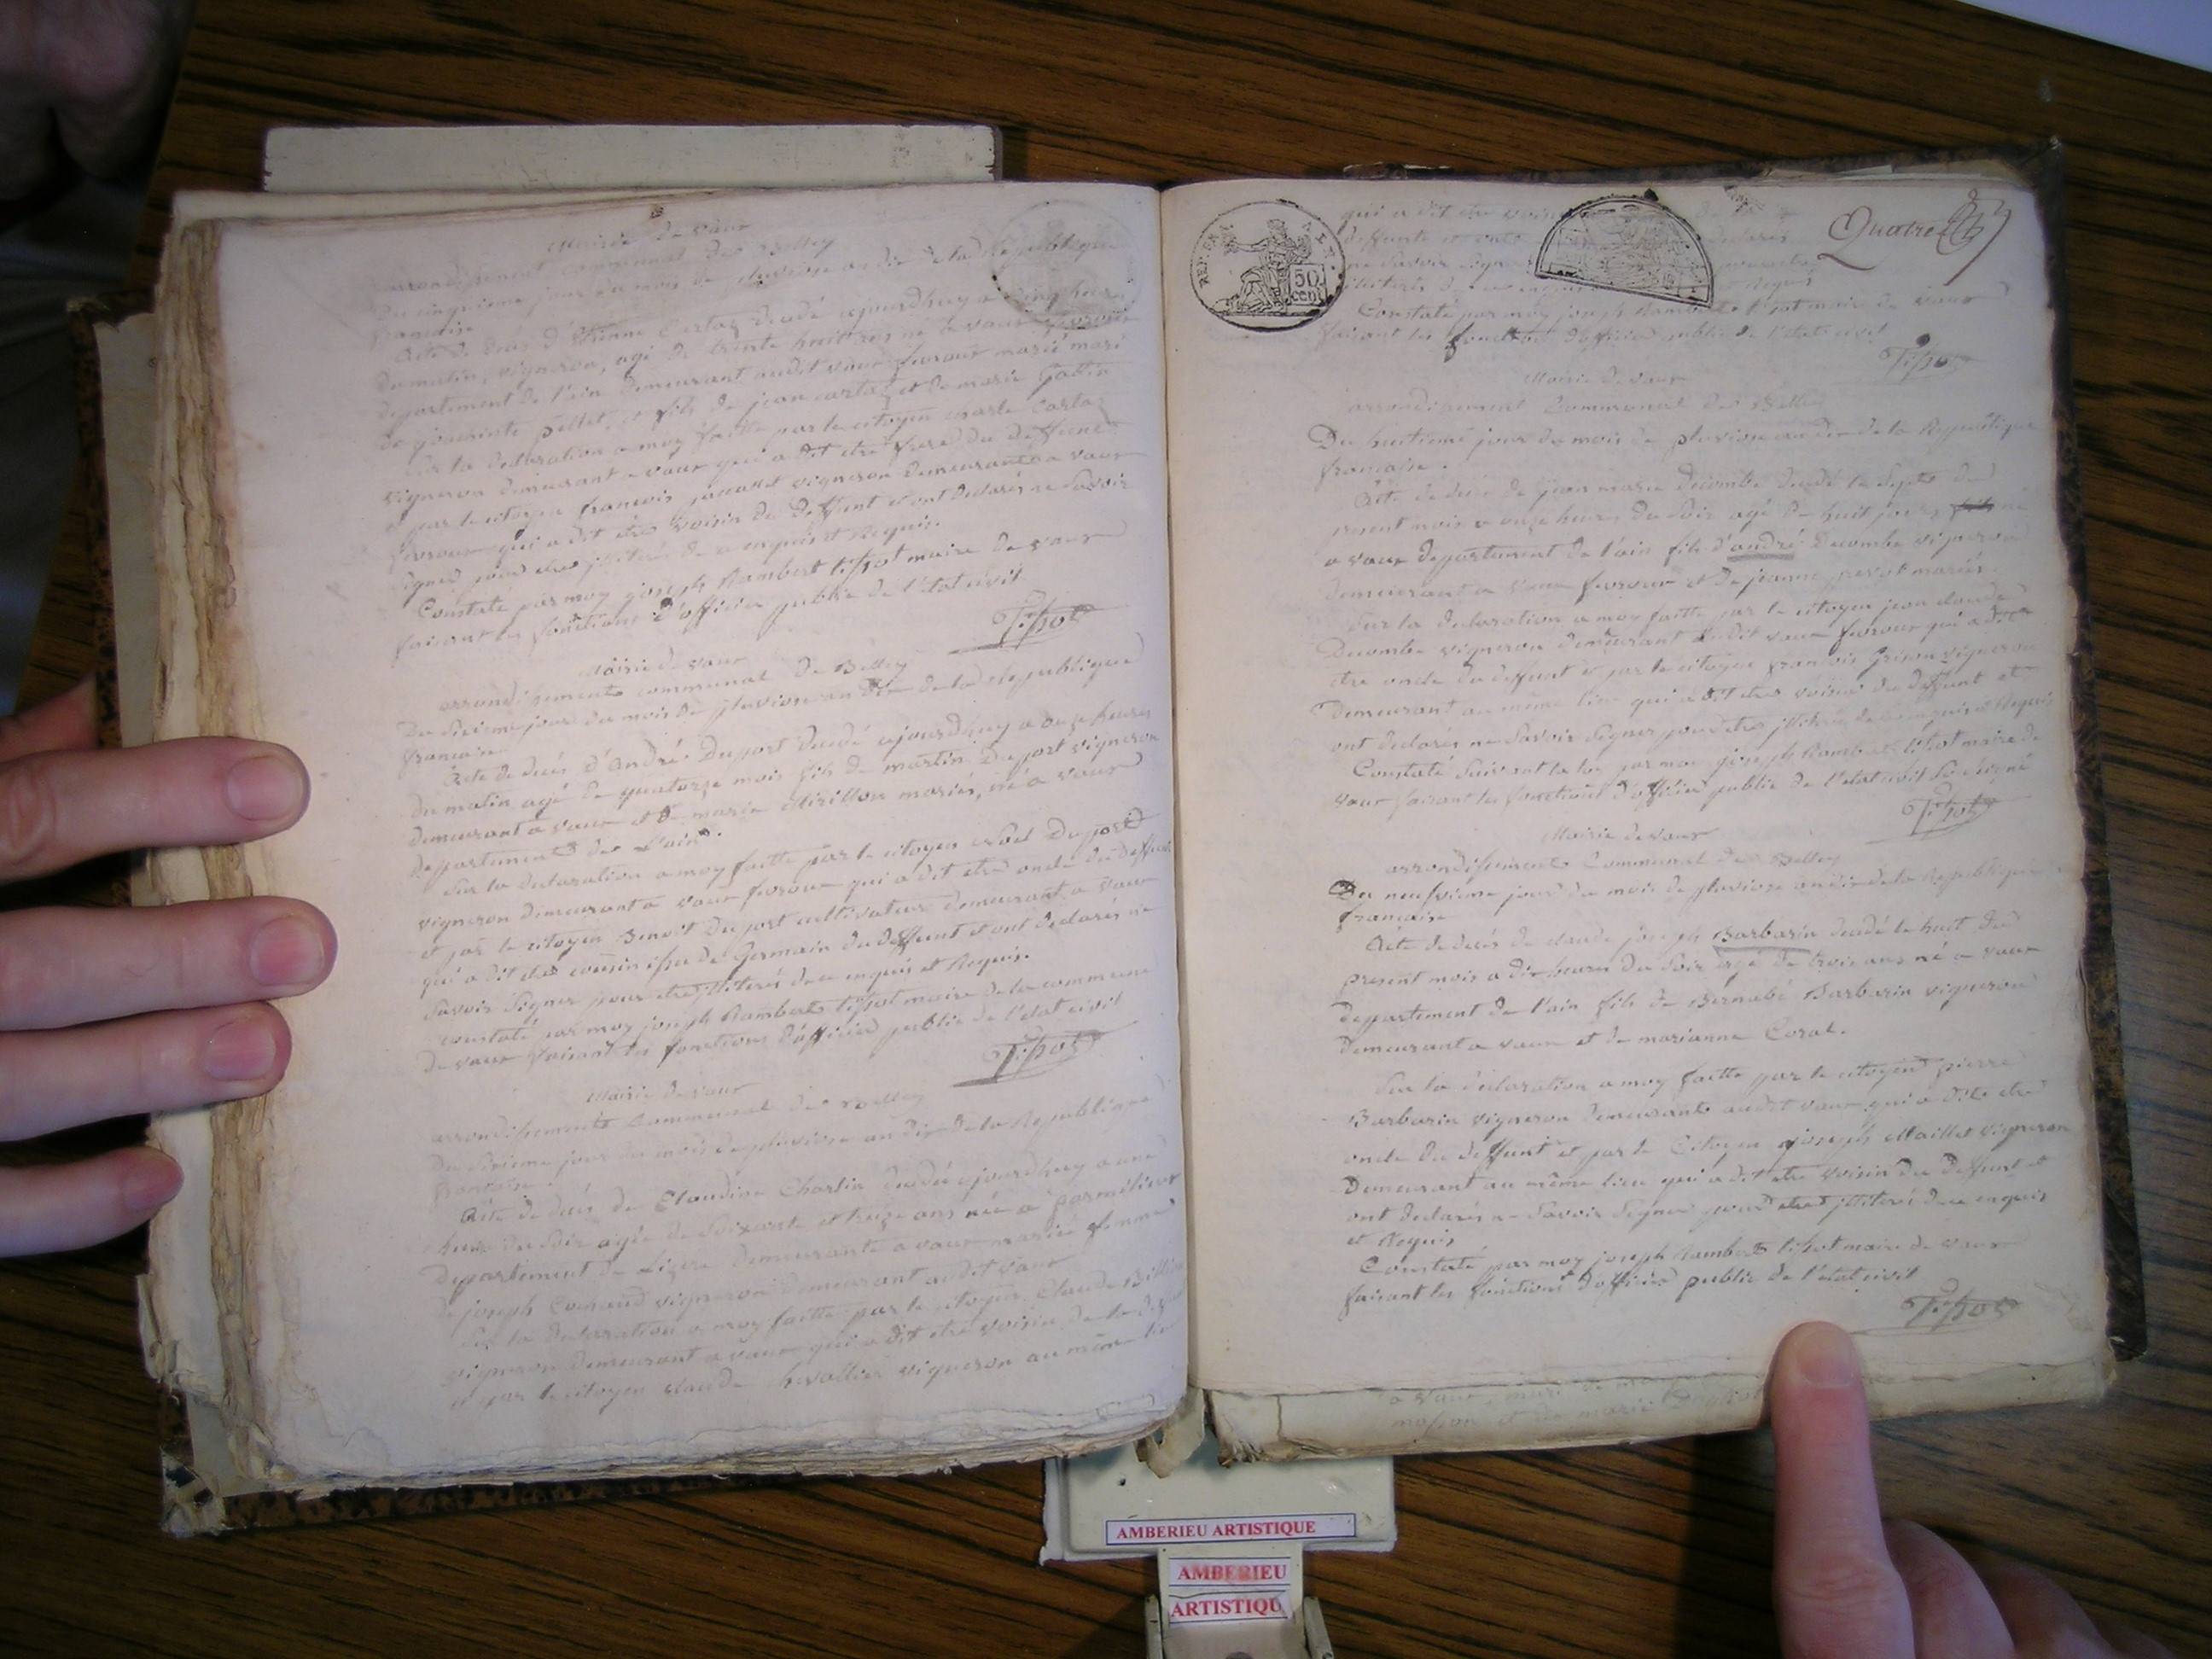 Mairie de vaux
arrondissement communal de Belley
Du cinquieme jour du mois de pluviose an dix de la Republique
francaise
Acte de deces d'Etienne Cartaz décédé aujourdhuy a cinq heures
du matin, vigneron, agé de trente huit ans né a vaux
departement de l'ain demeurant audit vaux fevroux marié
pellet, et fils de jean cartaz et de marie
Sur la declaration a moy faitte par le citoyen Cartaz
vigneron demeurant a vaux qui a dit etre frere du deffunt
et par le citoyen francois vigneron demeurant a vaux
fevroux qui a dit etre voisin du deffunt et ont declarés ne Savoir
signer pour etre jlliterés de ce enquis et Requis.
Constaté par moy joseph Rambert tissot maire de vaux
faisant les fonctions d'officier public de l'etat civil
Tissot
Mairie de vaux
arrondissement communal de Belley
Du Sixieme jour du mois de pluviose an dix de la Republique
francaise
Acte de decés d'André Duport decedé aujourdhuy a onze heures
du matin agé de quatorze mois fils de martin Duport vigneron
demeurant a vaux et de marie mariés, né a vaux
departement de l'ain.
Sur la declaration a moy faitte par le citoyen Noel Duport
vigneron demeurant a vaux fevroux qui a dit etre oncle du deffunt
et par le citoyen Benoit Duport cultivateur demeurant a vaux
qui a dit etre cousin issu de Germain du deffunt et ont declarés ne
Savoir Signer pour etre jlliterés de ce enquis et Requis.
constaté par moy joseph Rambert tissot maire de la commune
de vaux faisant les fonctions d'officier public de l'etat civil
Tissot
Mairie de vaux
arrondissement Communal de Belley
Du Sixieme jour du mois de pluviose an dix de la Republique
francaise.
Acte de decés de Claudine Charlin decedée aujourdhuy a une
heure du Soir agée de Soixante et treize ans née a parmilieux
departement de Lizere demeurante a vaux mariée femme
de joseph vigneron demeurant audit vaux
Sur la declaration a moy faitte par le citoyen Claude
vigneron demeurant a vaux qui a dit etre voisin de la
et par le citoyen claude chevallier vigneron au même lieu
REP. FRA
50 cent
Quatre
qui a dit etre voisin
deffunte et ont declarés
ne Savoir signer
jlliterés de ce enquis Requis
Constaté par moy joseph Rambert tissot maire de vaux
faisant les fonctions d'officier public de l'etat civil
Tissot
Mairie de vaux
arrondissement Communal de Belley
Du huitieme jour du mois de pluviose an dix de la Republique
francaise.
Acte de decés de jean marie Decombe decedé le Sept du
present mois a onze heures du Soir agé de huit jours fils né
a vaux departement de l'ain fils d'andré Decombe vigneron
demeurant a vaux fevroux et de jeanne prevot mariés
Sur la declaration a moy faitte par le citoyen jean claude
Decombe vigneron demeurant audit vaux fevroux qui a dit
etre oncle du deffunt et par le citoyen francois Grison vigneron
demeurant au même lieu qui a dit etre voisin du deffunt et
ont declarés ne Savoir Signer pour etre jlliterés de ce enquis et Requis
Constaté suivant la loy par moy joseph Rambert tissot maire de
vaux faisant les fonctions d'officier public de l'etat civil Soussigné
Tissot
Mairie de vaux
arrondissement Communal de Belley
Du neufvieme jour du mois de pluviose an dix de la Republique
francaise
Acte de decés de claude joseph Barbarin decedé le huit du
present mois a dix heures du Soir agé de trois ans né a vaux
departement de l'ain fils de Bernabé Barbarin vigneron
demeurant a vaux et de marianne Coral.
Sur la declaration a moy faitte par le citoyen pierre
Barbarin vigneron demeurant audit vaux qui a dit etre
oncle du deffunt et par le Citoyen joseph Maillet vigneron
Demeurant au même lieu qui a dit etre voisin du deffunt et
ont declarés ne Savoir Signer pour etre jlliterés de ce enquis
et Requis
Constaté par moy joseph Rambert tissot maire de vaux
faisant les fonctions d'officier public de l'etat civil
Tissot
a vaux, mari de
masson et de marie
AMBERIEU ARTISTIQUE
AMBERIEU
ARTISTIQU